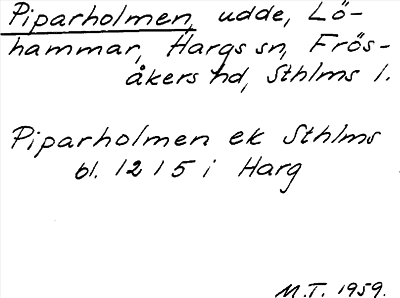 Piparholmen, udde, Lö-
hammar, Hargs sn, Frös-
åkers hd, Sthlms l.
Piparholmen ek Sthlms
bl. 1215 i Harg
M.T. 1959.